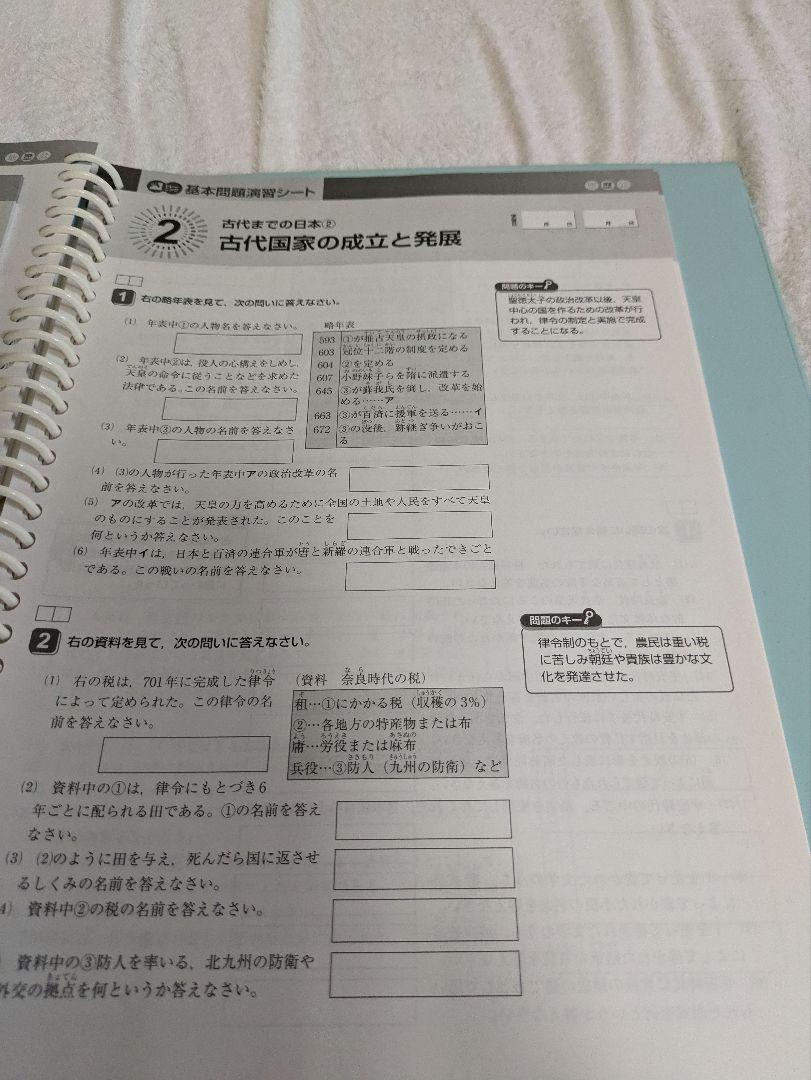 基本問題演習シート
歴
2
古代までの日本②
古代国家の成立と発展
月 日
月 日
1 右の略年表を見て，次の問いに答えなさい。
(1) 年表中①の人物名を答えなさい。
(2) 年表中②は，役人の心構えをしめし，
天皇の命令に従うことなどを求めた
法律である。この名前を答えなさい。
(3) 年表中③の人物の名前を答えなさ
い。
略年表
593 ①が推古天皇の摂政になる
603 冠位十二階の制度を定める
604 ②を定める
607 小野妹子らを隋に派遣する
645 ③が蘇我氏を倒し，改革を始
める……ア
663 ③が百済に援軍を送る……イ
672 ③の没後，跡継ぎ争いがおこ
る
(4) (3)の人物が行った年表中アの政治改革の名
前を答えなさい。
(5) アの改革では，天皇の力を高めるために全国の土地や人民をすべて天皇
のものにすることが発表された。このことを
何というか答えなさい。
(6) 年表中イは，日本と百済の連合軍が唐と新羅の連合軍と戦ったできごと
である。この戦いの名前を答えなさい。
問題のキー
聖徳太子の政治改革以後，天皇
中心の国を作るための改革が行
われ，律令の制定と実施で完成
することになる。
2 右の資料を見て，次の問いに答えなさい。
(1) 右の税は，701年に完成した律令
によって定められた。この律令の名
前を答えなさい。
(資料 奈良時代の税)
租…①にかかる税（収穫の3%）
②…各地方の特産物または布
庸…労役または麻布
兵役…③防人（九州の防衛）など
(2) 資料中の①は，律令にもとづき6
年ごとに配られる田である。①の名前を答え
なさい。
(3) (2)のように田を与え，死んだら国に返させ
るしくみの名前を答えなさい。
4) 資料中②の税の名前を答えなさい。
) 資料中の③防人を率いる，北九州の防衛や
外交の拠点を何というか答えなさい。
問題のキー
律令制のもとで，農民は重い税
に苦しみ朝廷や貴族は豊かな文
化を発達させた。